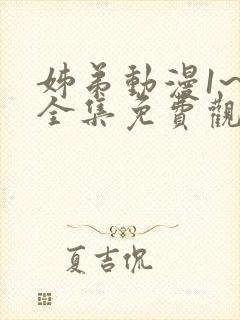 姊弟動漫1~
全集免費觀
夏吉侃